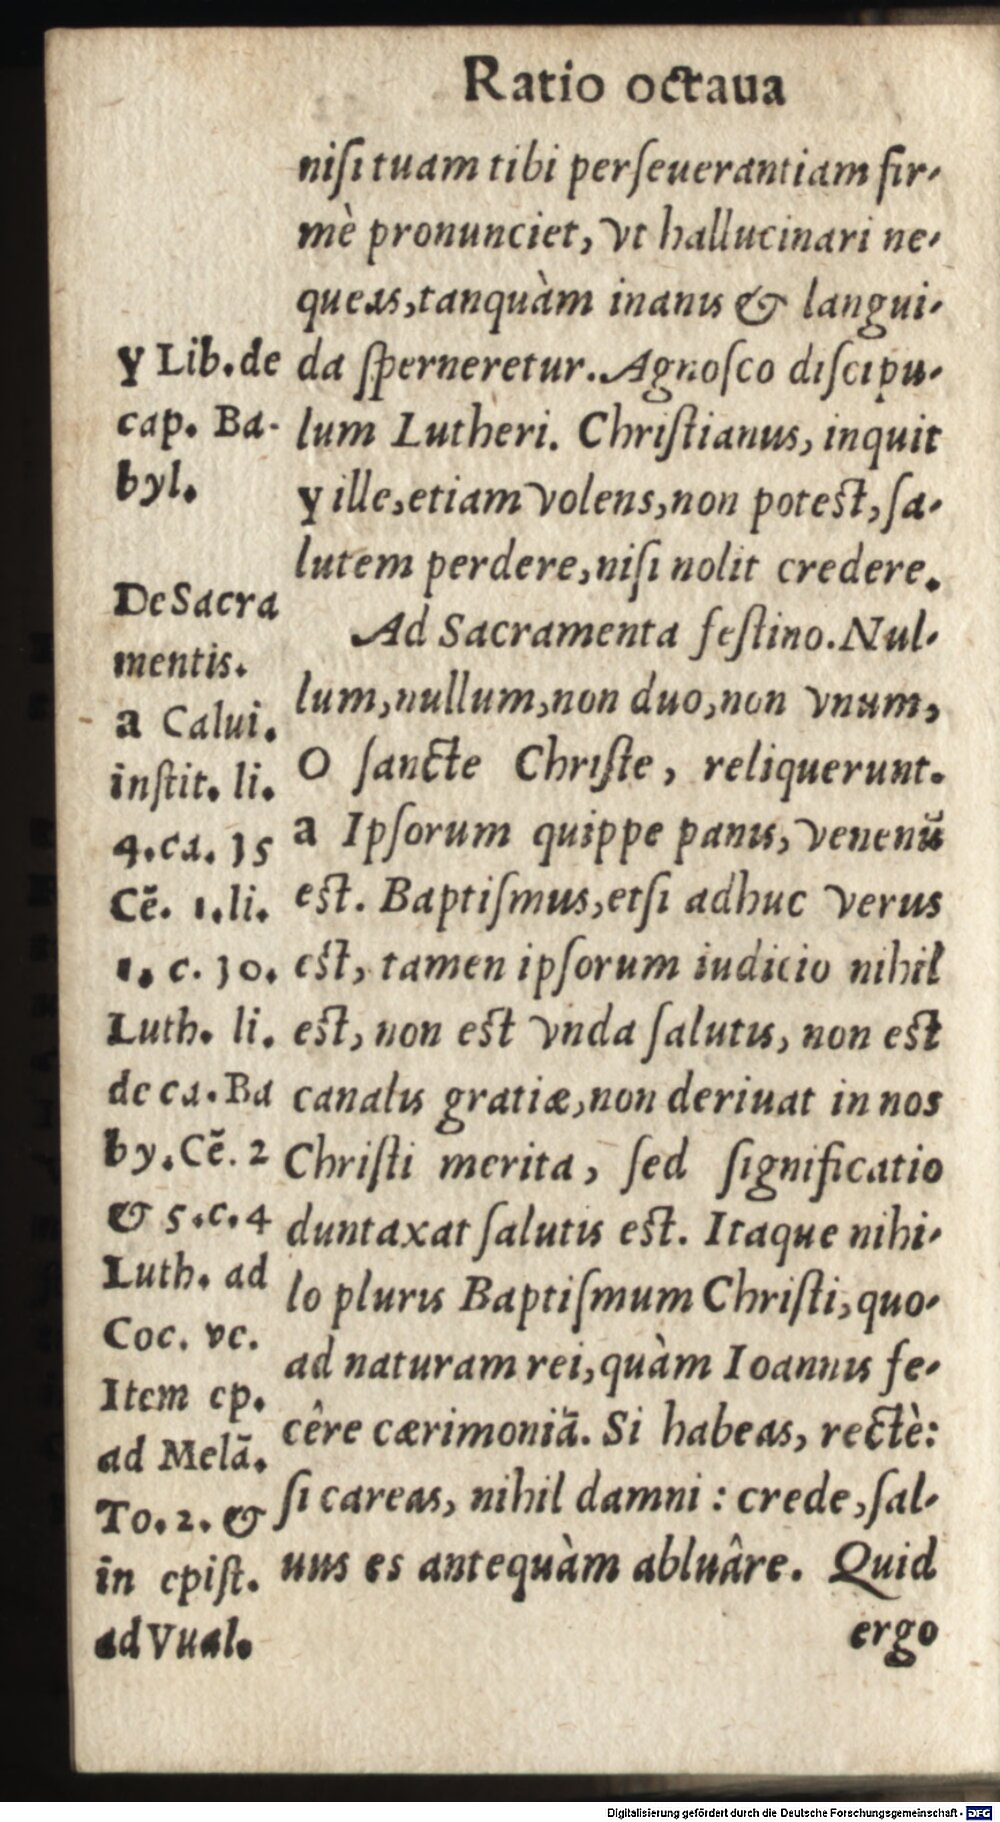 Ratio octaua
niſi tuam tibi perſeuerantiam fir-
mè pronunciet, vt hallucinari ne-
queas, tanquàm inanis & langui-
da ſperneretur. Agnoſco diſcipu-
lum Lutheri. Chriſtianus, inquit
y ille, etiam volens, non poteſt, ſa-
lutem perdere, niſi nolit credere.
Ad Sacramenta feſtino. Nul-
lum, nullum, non duo, non vnum,
O ſancte Chriſte, reliquerunt.
a Ipſorum quippe panis, venenũ
eſt. Baptiſmus, etſi adhuc verus
eſt, tamen ipſorum iudicio nihil
eſt, non eſt vnda ſalutis, non eſt
canalis gratiæ, non deriuat in nos
Chriſti merita, ſed ſignificatio
duntaxat ſalutis eſt. Itaque nihi-
lo pluris Baptiſmum Chriſti, quo-
ad naturam rei, quàm Ioannis fe-
cêre cærimoniã. Si habeas, rectè:
ſi careas, nihil damni : crede, ſal-
uus es antequàm abluâre. Quid
ergo
y Lib. de
cap. Ba-
byl.
De Sacra
mentis.
a Calui.
inſtit. li.
4. ca. 15
Cẽ. 1. li.
1. c. 10.
Luth. li.
de ca. Ba
by. Cẽ. 2
& 5. c. 4
Luth. ad
Coc. vc.
Item ep.
ad Melã.
To. 2. &
in epiſt.
ad Vual.
Digitalisierung gefördert durch die Deutsche Forschungsgemeinschaft - DFG